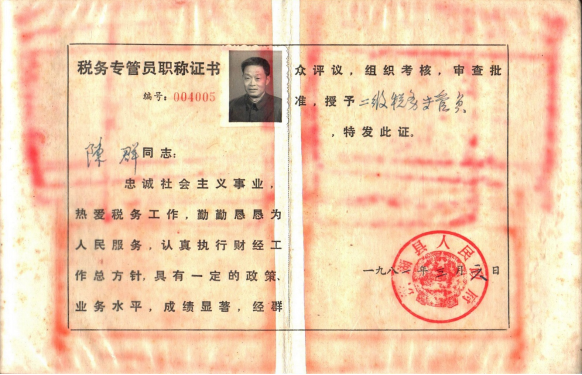 税务专管员职称证书
编号：004005
陳群同志：
忠诚社会主义事业，
热爱税务工作，勤勤恳恳为
人民服务，认真执行财经工
作总方针，具有一定的政策、
业务水平，成绩显著，经群
众评议，组织考核，审查批
准，授予二级税务专管员
，特发此证。
县人民政府
一九八 年三月 日